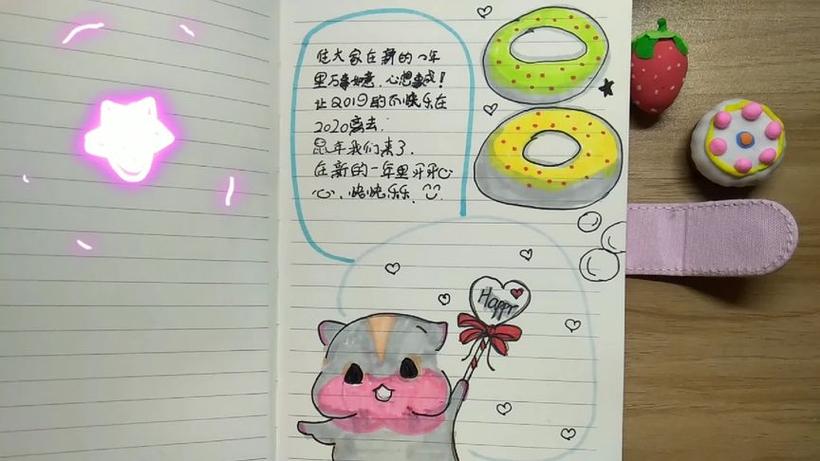 住大家在新的一年
里万事如意,心想事成!
让2019的不快乐在
2020离去.
鼠年我们来了.
在新的一年里开开心
心,快快乐乐.
Happy